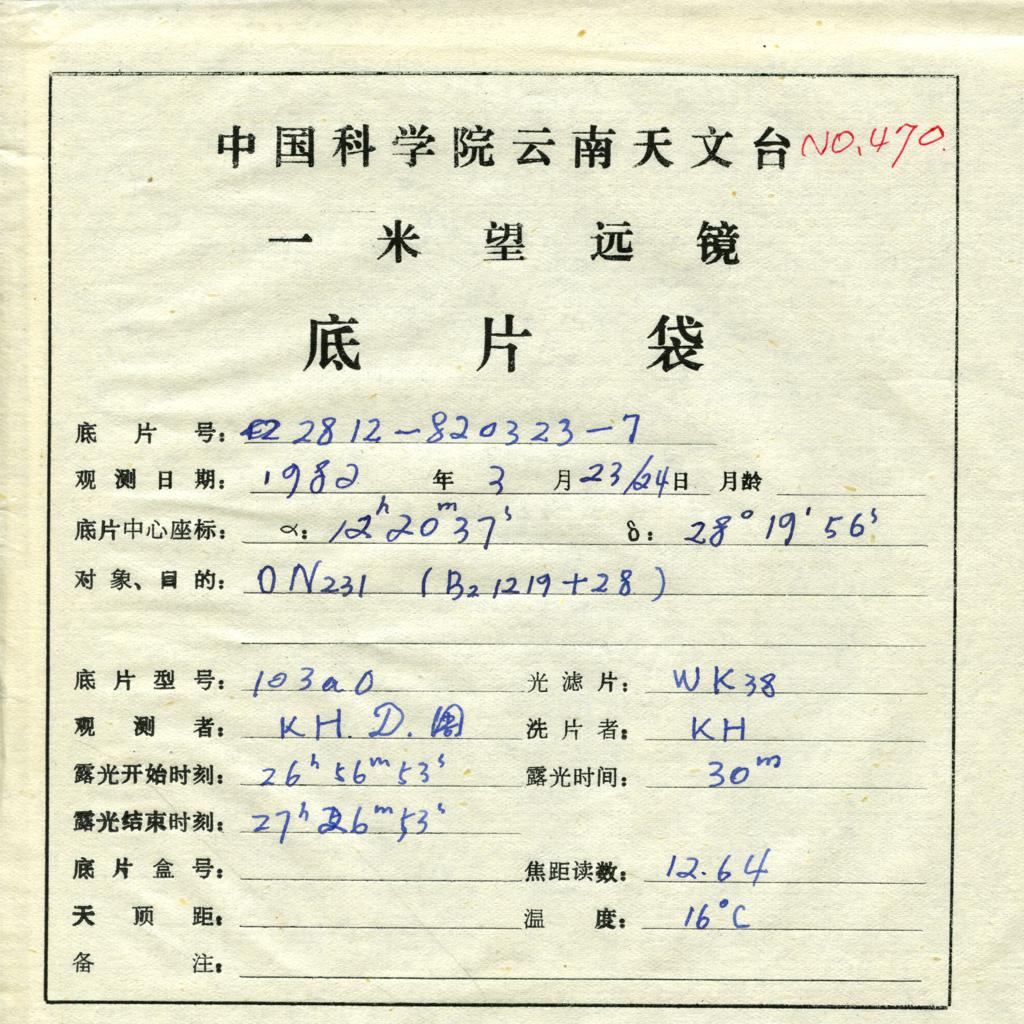 中国科学院云南天文台 NO.470
一米望远镜
底片袋
底片号: 2812-820323-7
观测日期: 1982 年 3 月 23/24 日 月龄
底片中心座标: α: 12ʰ20ᵐ37ˢ δ: 28°19′56ˢ
对象、目的: ON231 (B2 1219+28)
底片型号: 103aO 光滤片: WK38
观测者: KH. D. 洗片者: KH
露光开始时刻: 26ʰ56ᵐ53ˢ 露光时间: 30ᵐ
露光结束时刻: 27ʰ26ᵐ53ˢ
底片盒号: 焦距读数: 12.64
天顶距: 温度: 16°C
备注: